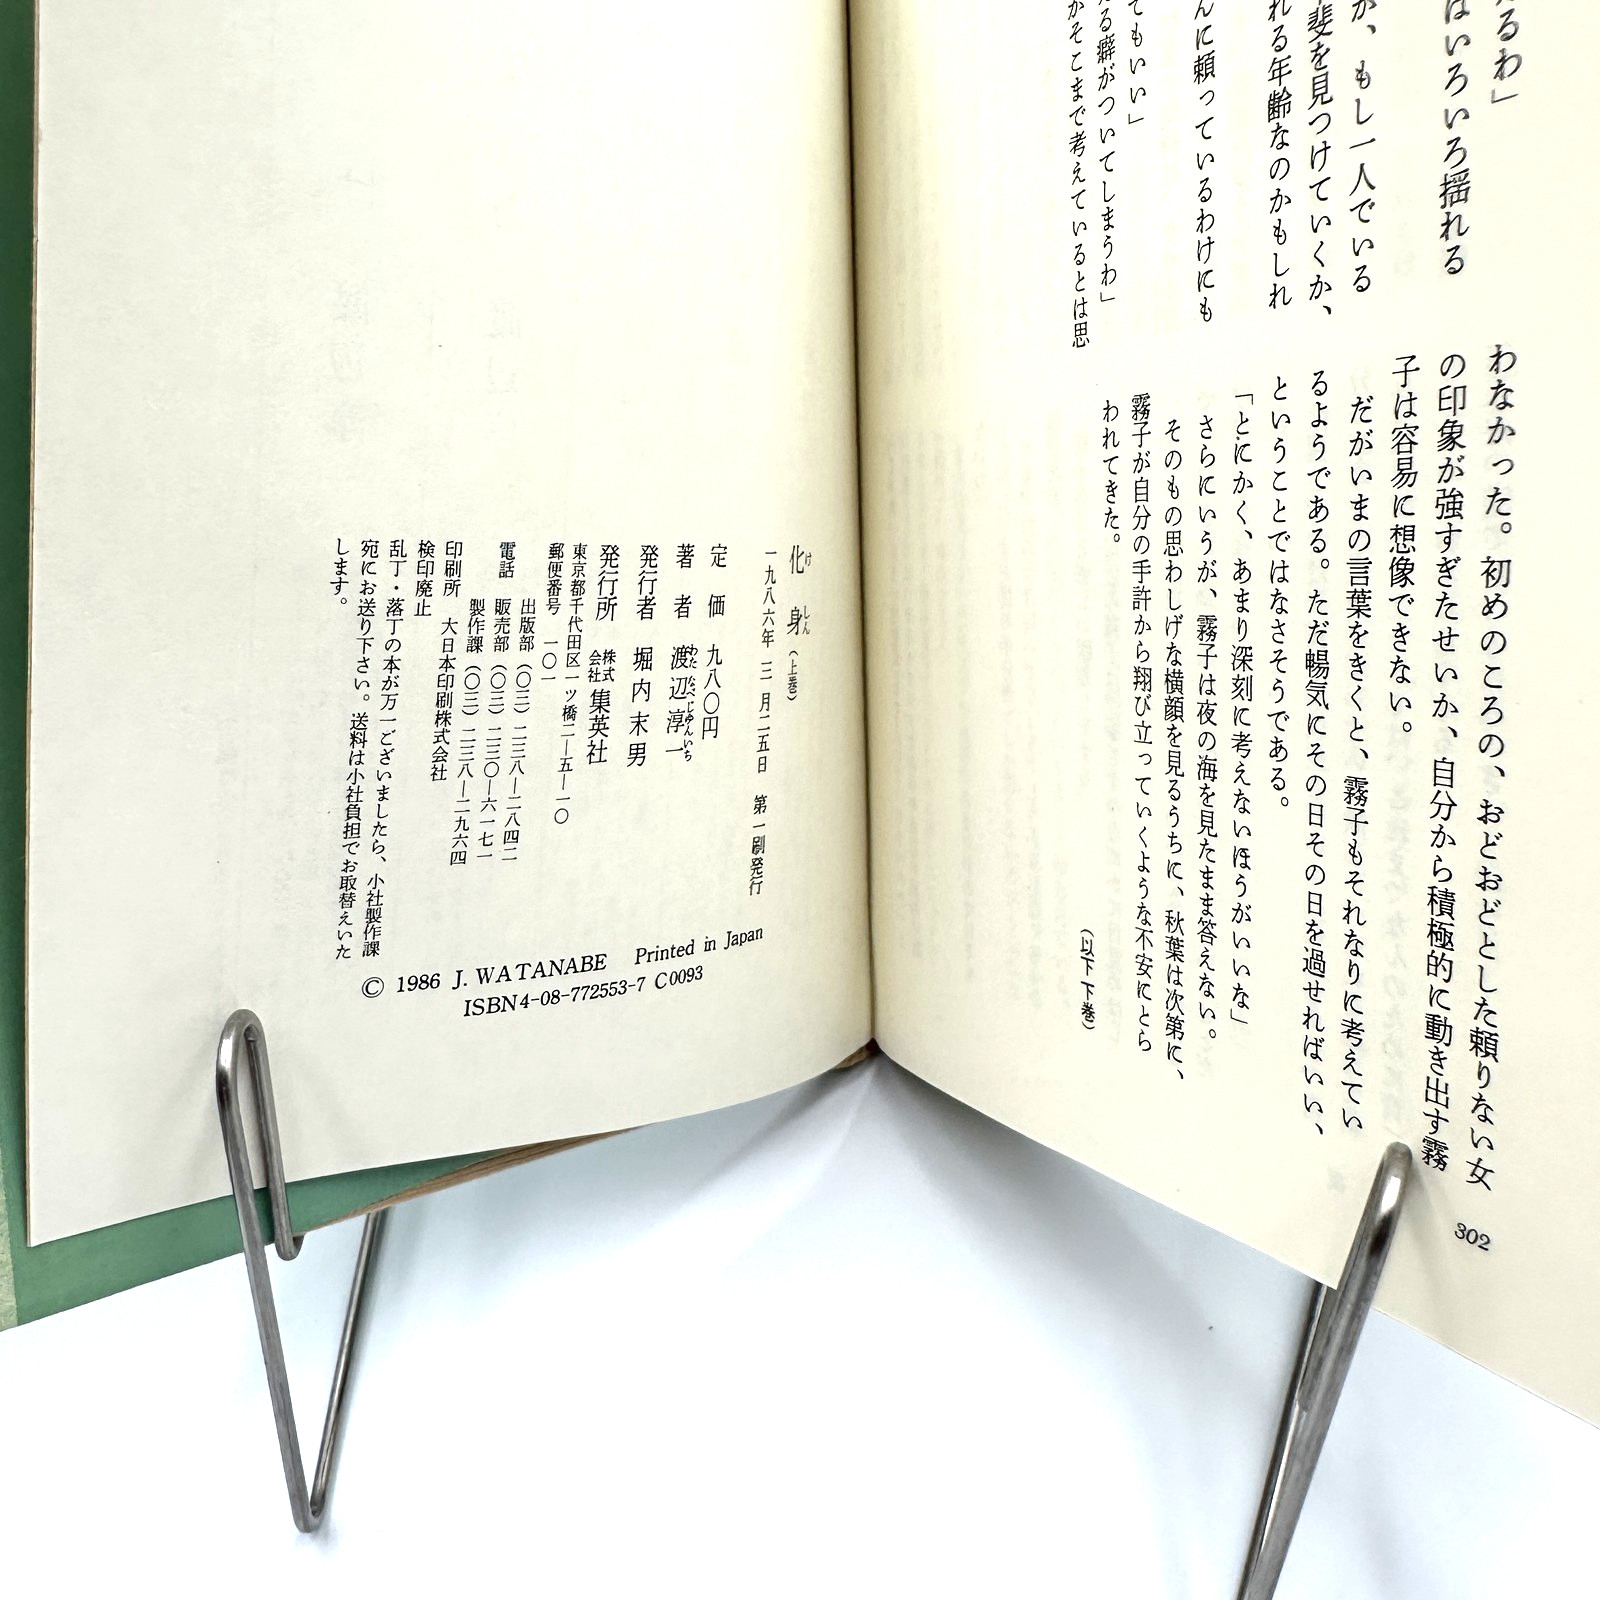 るわ」
はいろいろ揺れる
が、もし一人でいる
斐を見つけていくか、
れる年齢なのかもしれ
んに頼っているわけにも
てもいい」
る癖がついてしまうわ」
かそこまで考えているとは思
わなかった。初めのころの、おどおどとした頼りない女
の印象が強すぎたせいか、自分から積極的に動き出す霧
子は容易に想像できない。
だがいまの言葉をきくと、霧子もそれなりに考えてい
るようである。ただ暢気にその日その日を過せればいい、
ということではなさそうである。
「とにかく、あまり深刻に考えないほうがいいな」
さらにいうが、霧子は夜の海を見たまま答えない。
そのもの思わしげな横顔を見るうちに、秋葉は次第に、
霧子が自分の手許から翔び立っていくような不安にとら
われてきた。
（以下下巻）
302
化身（上巻）
けしん
一九八六年 三 月二五日 第一刷発行
定価 九八〇円
著者 渡辺淳一
わたなべじゅんいち
発行者 堀内末男
発行所 株式会社 集英社
東京都千代田区一ツ橋二―五―一〇
郵便番号 一〇一
電話 出版部（〇三）二三八―二八四二
販売部（〇三）二三〇―六一七一
製作課（〇三）二三八―二九六四
印刷所 大日本印刷株式会社
検印廃止
乱丁・落丁の本が万一ございましたら、小社製作課
宛にお送り下さい。送料は小社負担でお取替えいた
します。
© 1986 J. WATANABE Printed in Japan
ISBN4-08-772553-7 C0093